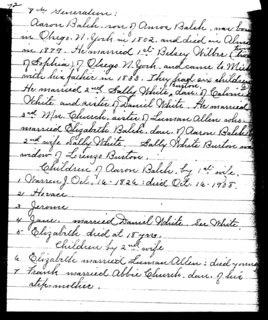 72
7th Generation:
Aaron Balch, son of Aaron Balch, was born
in Otsego N. York in 1802 and died in
in 1879. He married 1st Betsey Wilbur
of Sophia, of Otsego N. York, and came to Mich
with his father in 1833. They had six children
He married 2nd Sally White, dau. of
White and sister of Daniel White. He married
3rd Mrs. Church, sister of Luman Allen who
married Elizabeth Balch, dau. of Aaron Balch &
2nd wife Sally White. Sally White Burton was
widow of Lorenzo Burton.
Children of Aaron Balch, by 1st wife.
1 Warren J. Oct. 16 - 1826: died Oct. 16 -
2 Horace
3 Jerome
4 Jane married Daniel White. See White.
5 Elizabeth died at 18 yrs.
Children by 2nd wife
6 Elizabeth married Luman Allen; died young
7 married Abbie Church, dau. of his
step-mother.